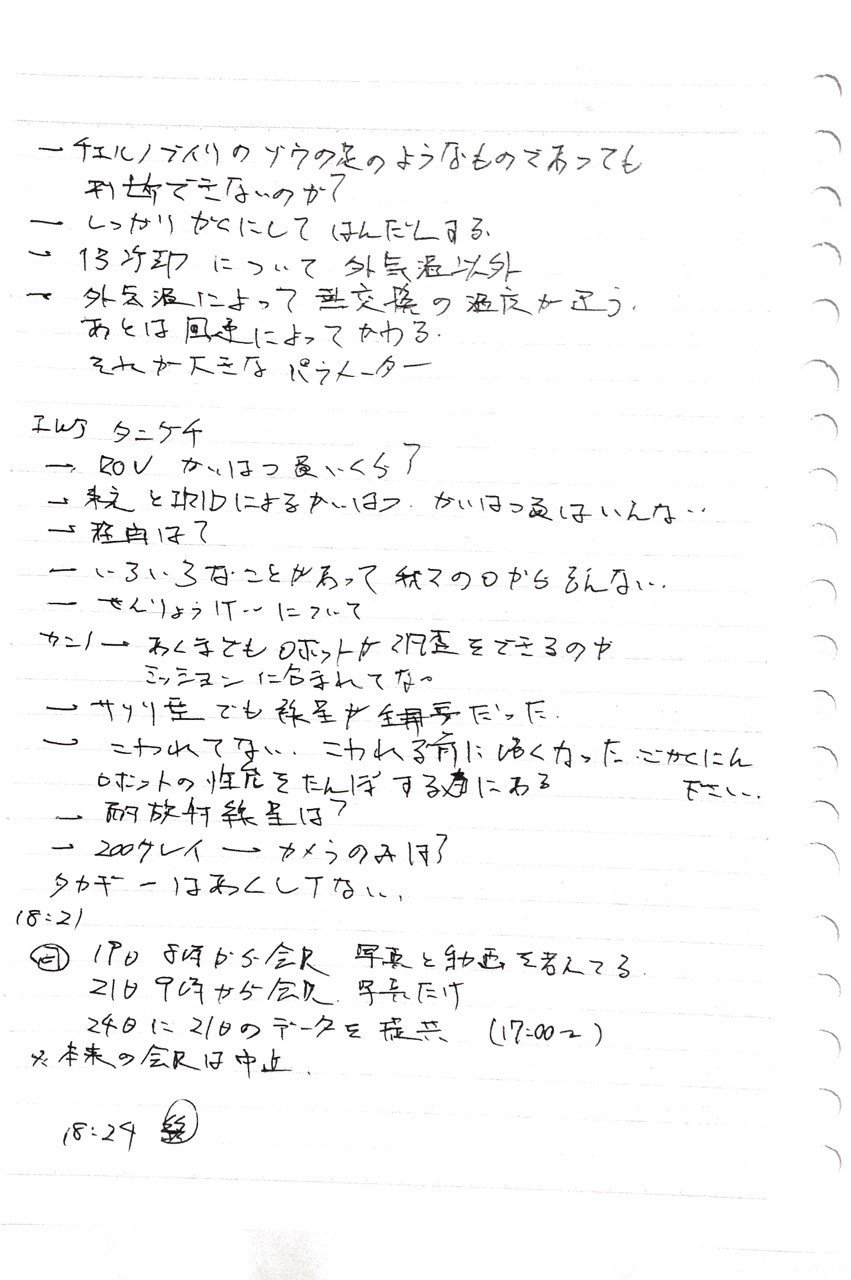 → チェルノブイリのゾウの足のようなものであっても
判断できないのか?
→ しっかりかくにして はんだんする.
→ 1号冷却 について 外気温以外
→ 外気温によって 熱交換の温度が違う.
あとは風速によってかわる.
それが大きな パラメーター
IWJ タニグチ
→ ROV かいはつ費いくら?
→ 東芝とIRIDによるかいはつ. かいはつ費はいえない..
→ 理由は?
→ いろいろなことがあって 我々の口から言えない..
→ せんりょうけ‥について
→ あくまでも ロボットが調査をできるのか
ミッションに含まれてな。
→ サソリ型でも線量が重要だった.
→ こわれてない. こわれる前に 暗くなった.ごかくにん
下さい..
ロボットの性能をたんぽする為にある
→ 耐放射線量は?
→ 200グレイ → カメラのみは?
はあくしてない.
18:21
19日 8時から会見 写真と動画を考えてる.
21日 9時から会見. 写真だけ
24日に21日のデータを提供 (17:00〜)
※本来の会見は中止.
18:24 終